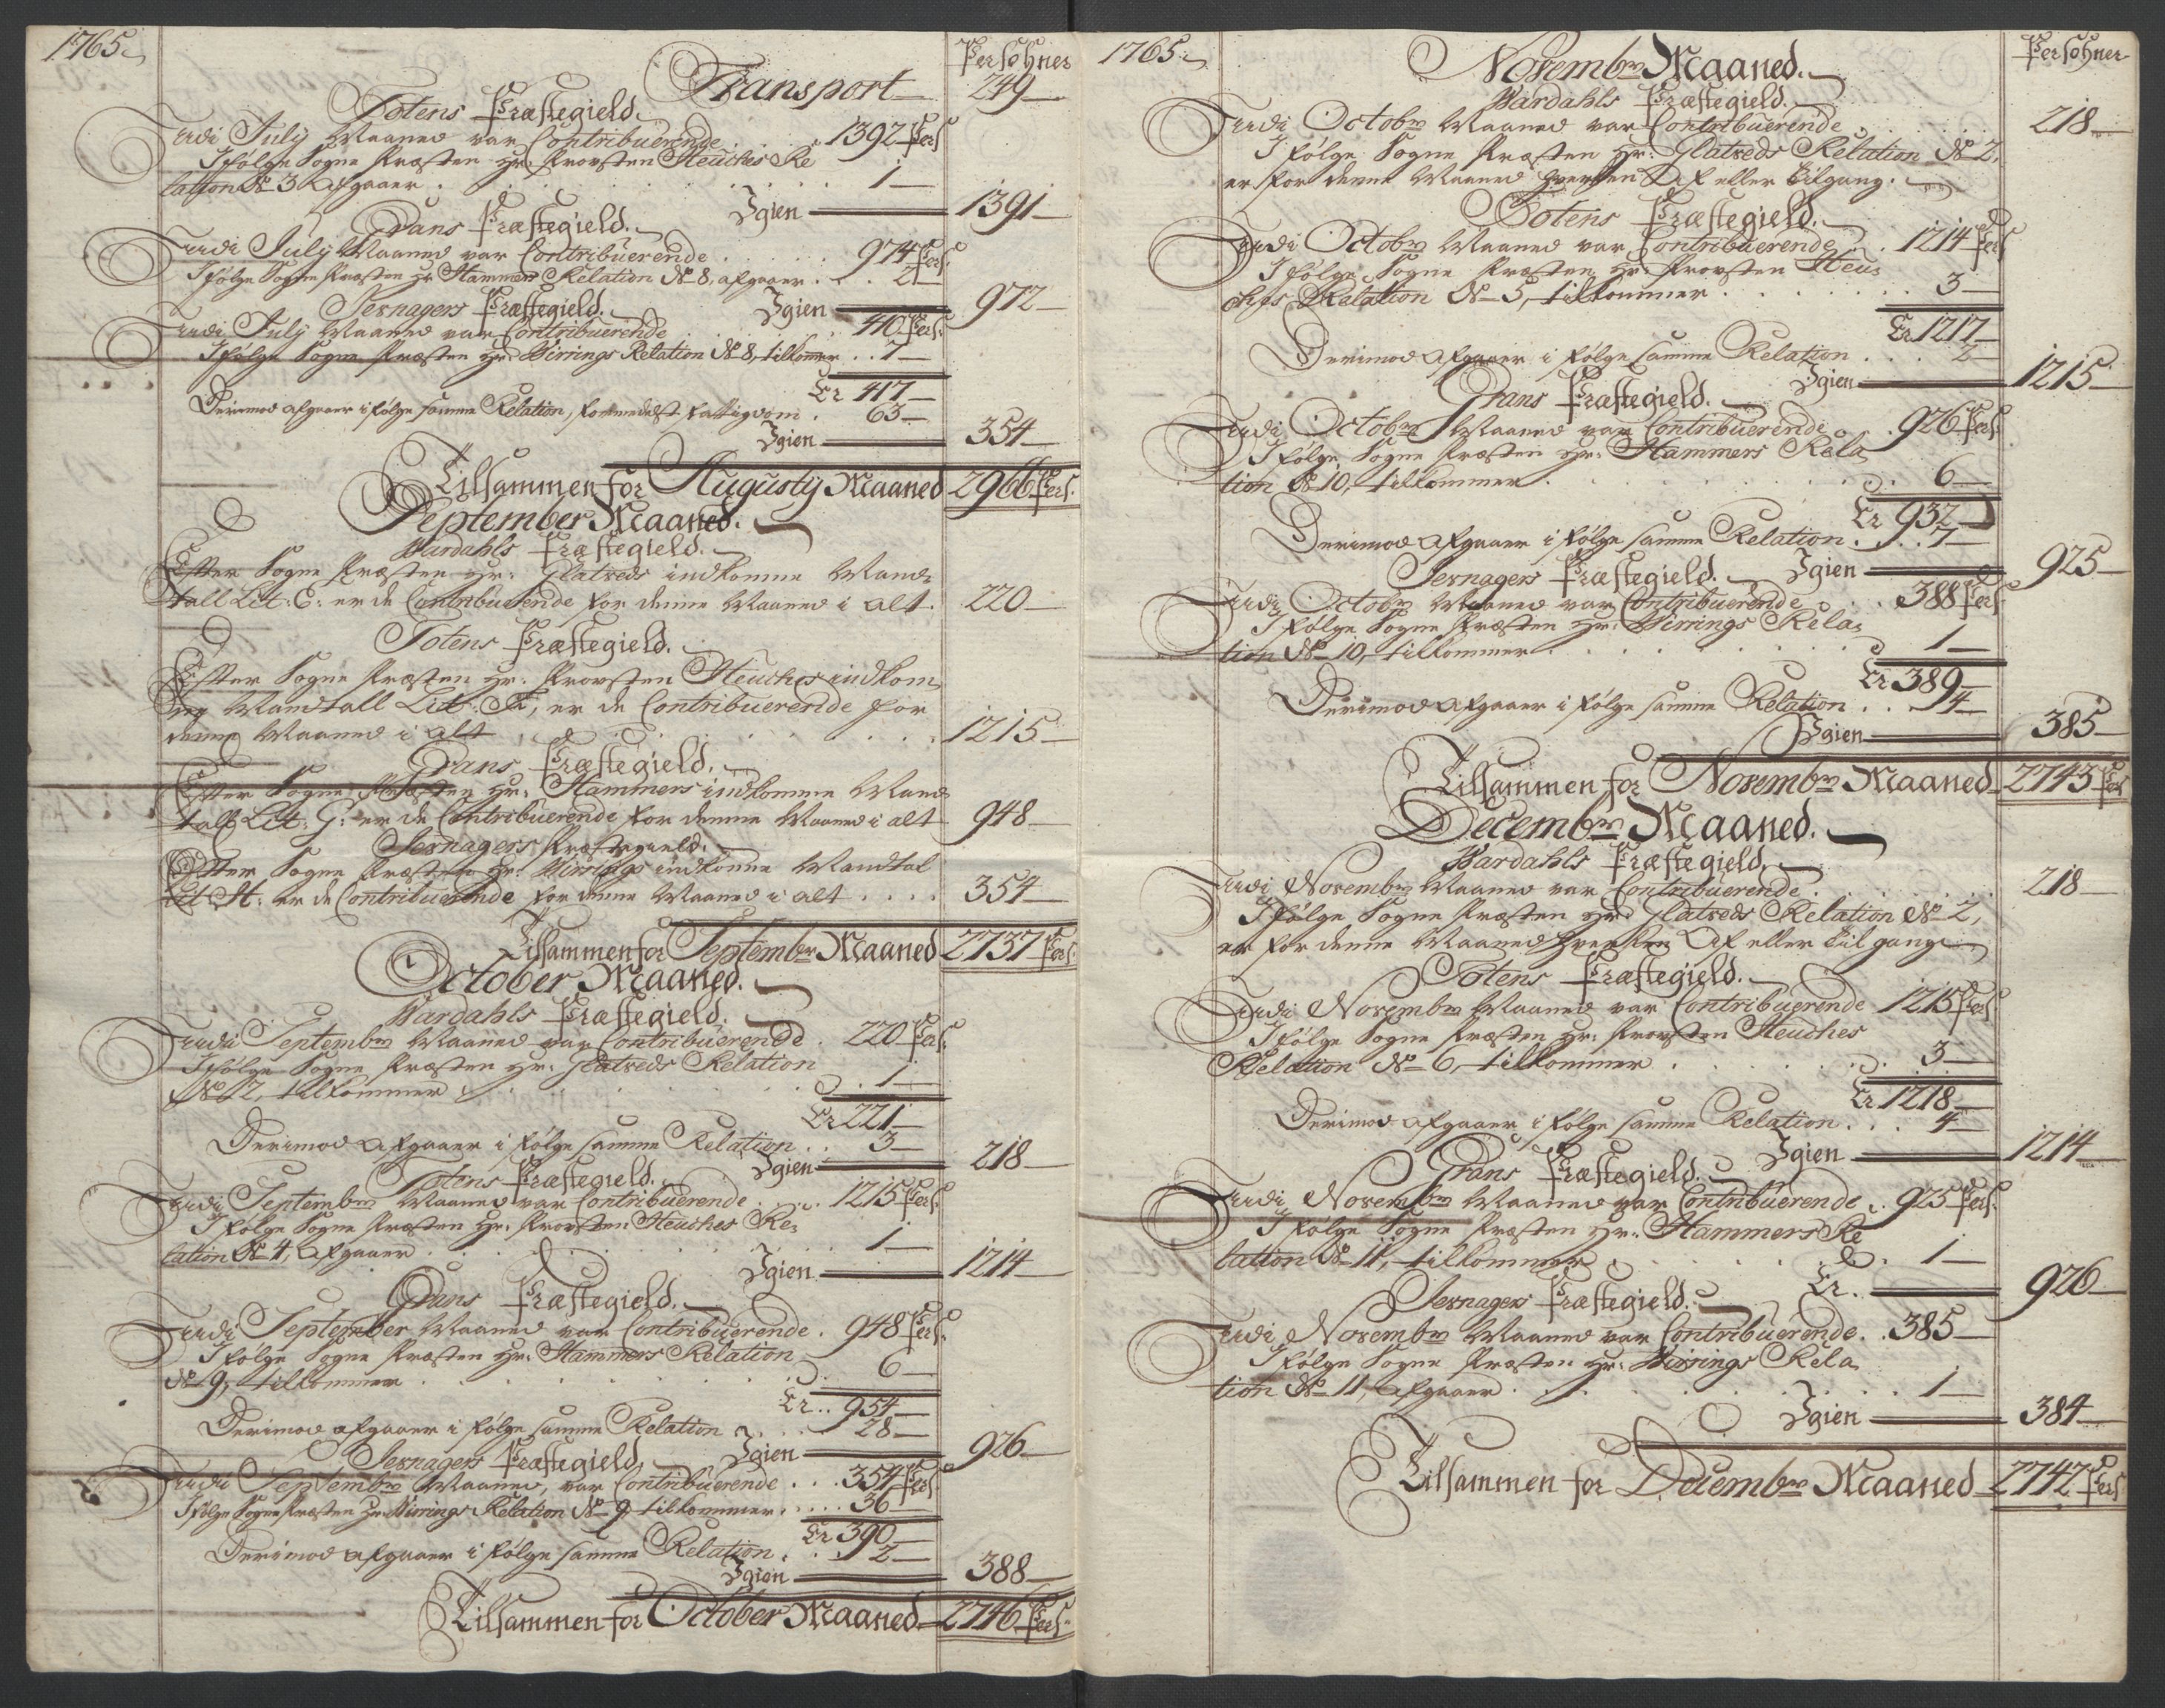 1765
Persohner
Transport 249
Totens Præstegield.
Udi July Maaned var Contribuerende 1392 Pers
I følge Sogne Præsten Hr: Provsten Heuches Re
lation No 3 Afgaaer 1
Igien 1391
Grans Præstegield.
Udi July Maaned var Contribuerende 974 Pers:
I følge Sogne Præsten Hr Hammers Relation No 8, afgaaer 2
Igien 972
Jernagers Præstegield.
Udi July Maaned var Contribuerende 410 Pers:
I følge Sogne Præsten Hr: Relation No 8, tilkommer 7
Er 417
Derimod afgaaer i følge samme Relation, formedelst fattigdom 63
Igien 354
Tilsammen for Augusty Maaned 2966 Pers.
September Maaned.
Wardahls Præstegield.
Efter Sogne Præsten Hr: Glatveds indkomne Mand
tall Lit: E: er de Contribuerende for denne Maaned i alt 220
Totens Præstegield.
Efter Sogne Præsten Hr: Provsten Heuches indkom
ne Mandtall Lit: F, er de Contribuerende for
denne Maaned i alt 1215
Grans Præstegield.
Efter Sogne Præsten Hr: Hammers indkomne Mand
tall Lit: G: er de Contribuerende for denne Maaned i alt 948
Jernagers Præstegield.
Efter Sogne Præsten Hr: indkomne Mandtal
Lit H: er de Contribuerende for denne Maaned i alt 354
Tilsammen for Septembr Maaned 2737 Pers.
October Maaned.
Wardahls Præstegield.
Udi Septembr Maaned var Contribuerende 220 Pers:
I følge Sogne Præsten Hr: Glatveds Relation
No 12, tilkommer 1
Er 221
Derimod afgaaer i følge samme Relation 3
Igien 218
Totens Præstegield.
Udi Septembr Maaned var Contribuerende 1215 Pers:
I følge Sogne Præsten Hr: Provsten Heuches Re
lation No 4, Afgaaer 1
Igien 1214
Grans Præstegield.
Udi September Maaned var Contribuerende 948 Pers:
I følge Sogne Præsten Hr: Hammers Relation
No 9, tilkommer 6
Er 954
Derimod afgaaer i følge samme Relation 28
Igien 926
Jernagers Præstegield.
Udi Septembr Maaned, var Contribuerende 354 Pers:
I følge Sogne Præsten Hr Relation No 9 tilkommer 36
Er 390
Derimod afgaaer i følge samme Relation 2
Igien 388
Tilsammen for October Maaned 2746 Pers.
1765
Persohner
Novembr Maaned.
Wardahls Præstegield.
Udi Octobr Maaned var Contribuerende 218
I følge Sogne Præsten Hr: Glatveds Relation No 2,
er for denne Maaned hverken Af eller Tilgang.
Totens Præstegield.
Udi Octobr Maaned var Contribuerende 1214 Pers
I følge Sogne Præsten Hr: Provsten Heu
ches Relation No 5, tilkommer 3
Er 1217
Derimod Afgaaer i følge samme Relation 2
Igien 1215
Grans Præstegield.
Udi Octobr Maaned var Contribuerende 926 Pers.
I følge Sogne Præsten Hr: Hammers Rela
tion No 10, tilkommer 6
Er 932
Derimod Afgaaer i følge samme Relation 7
Igien 925
Jernagers Præstegield.
Udi Octobr Maaned var Contribuerende 388 Pers.
I følge Sogne Præsten Hr: Rela
tion No 10, tilkommer 1
Er 389
Derimod Afgaaer i følge samme Relation 4
Igien 385
Tilsammen for Novembr Maaned 2743 Pers
Decembr Maaned.
Wardahls Præstegield.
Udi Novembr Maaned var Contribuerende 218
I følge Sogne Præsten Hr: Glatveds Relation No 2,
er for denne Maaned hverken Af eller Tilgang
Totens Præstegield.
Udi Novembr Maaned var Contribuerende 1215 Pers
I følge Sogne Præsten Hr: Provsten Heuches
Relation No 6, tilkommer 3
Er 1218
Derimod afgaaer i følge samme Relation 4
Igien 1214
Grans Præstegield.
Udi Novembr Maaned var Contribuerende 925 Pers.
I følge Sogne Præsten Hr: Hammers Re
lation No 11, tilkommer 1
Er 926
Jernagers Præstegield.
Udi Novembr Maaned var Contribuerende 385
I følge Sogne Præsten Hr: Rela
tion No 11, Afgaaer 1
Igien 384
Tilsammen for Decembr Maaned 2742 Pers